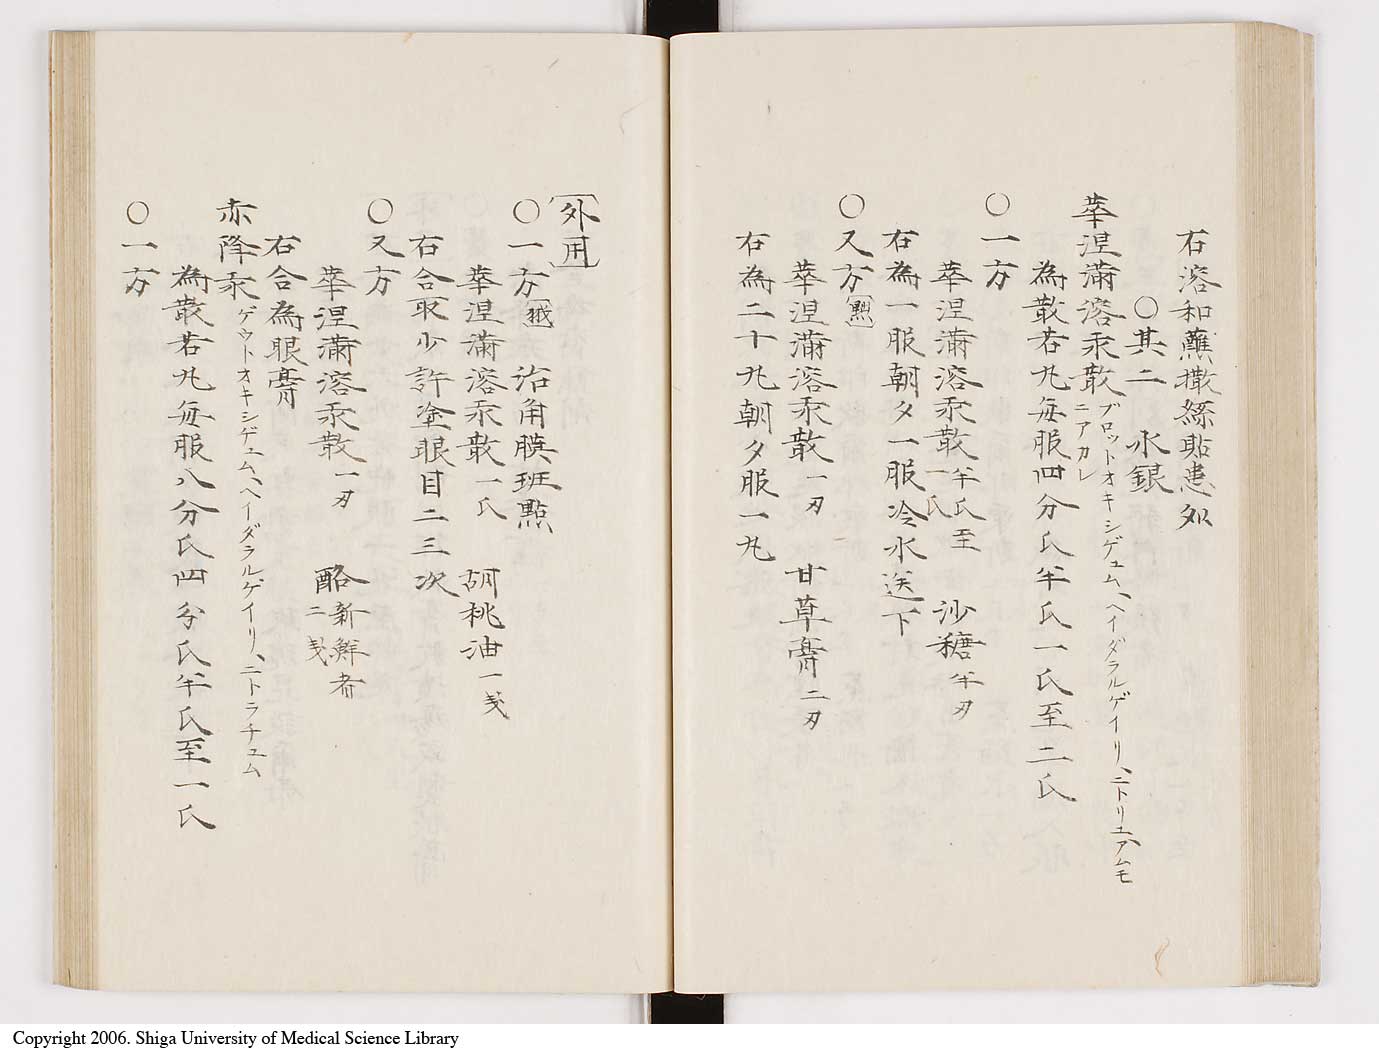 右溶和蘸撒絲貼患処
〇其二　水銀
華涅満溶汞散　ブロットオキシゲュム、ヘイダラルゲイリ、ニトリユ、アムモ
ニアカレ
為散若丸毎服四分氏半氏一氏至二氏
〇一方
華涅満溶汞散半氏至一氏　沙糖半刄
右為一服朝夕一服冷水送下
〇又方
華涅満溶汞散一刄　甘草膏二刄
右為二十丸朝夕服一丸
外用
〇一方　治角膜班點
華涅満溶汞散一氏　胡桃油一戔
右合取少許塗眼目二三次
〇又方
華涅満溶汞散一刄　酪新鮮者二戔
右合為眼膏
赤降汞　ゲウトオキシゲュム、ヘイダラルゲイリ、ニトラチュム
為散若丸毎服八分氏四分氏半氏至一氏
〇一方
Copyright 2006. Shiga University of Medical Science Library